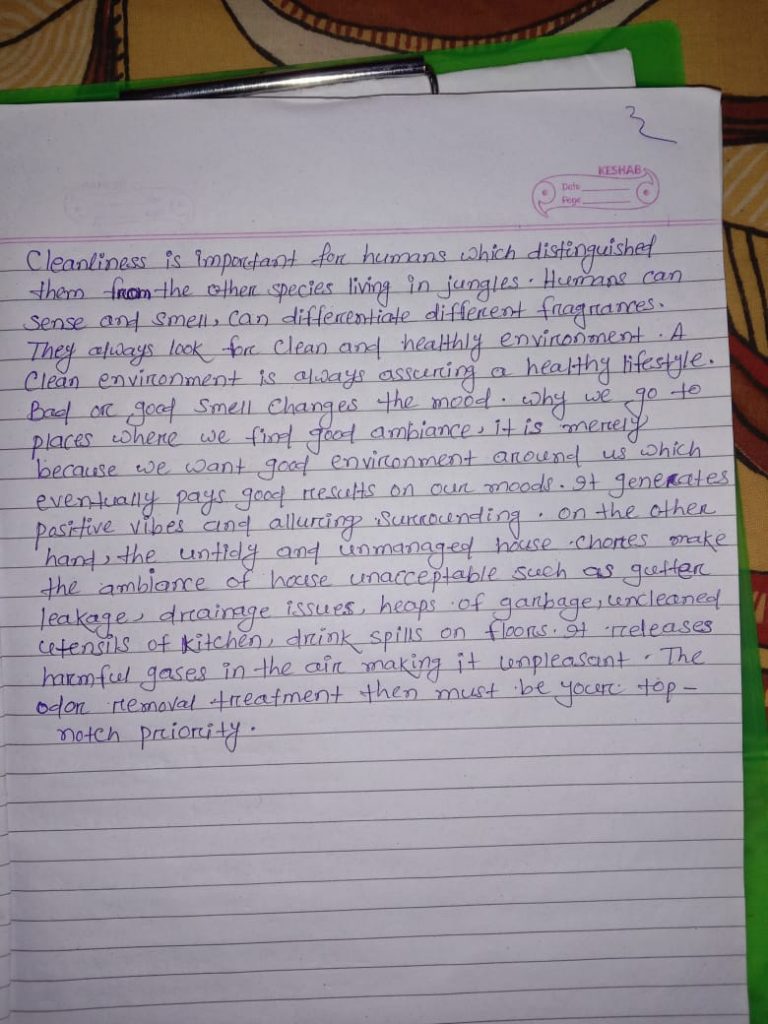 KESHAB
Date
Page
Cleanliness is important for humans which distinguished
them from the other species living in jungles. Humans can
sense and smell, can differentiate different fragrances.
They always look for clean and healthly environment. A
Clean environment is always assuring a healthy lifestyle.
Bad or good smell changes the mood. why we go to
places where we find good ambiance, it is merely
because we want good environment around us which
eventually pays good results on our moods. It generates
positive vibes and alluring surrounding. on the other
hand, the untidy and unmanaged house chores make
the ambiance of house unacceptable such as gutter
leakage, drainage issues, heaps of garbage, uncleaned
utensils of kitchen, drink spills on floors. It releases
harmful gases in the air making it unpleasant. The
odor removal treatment then must be your top-
notch priority.